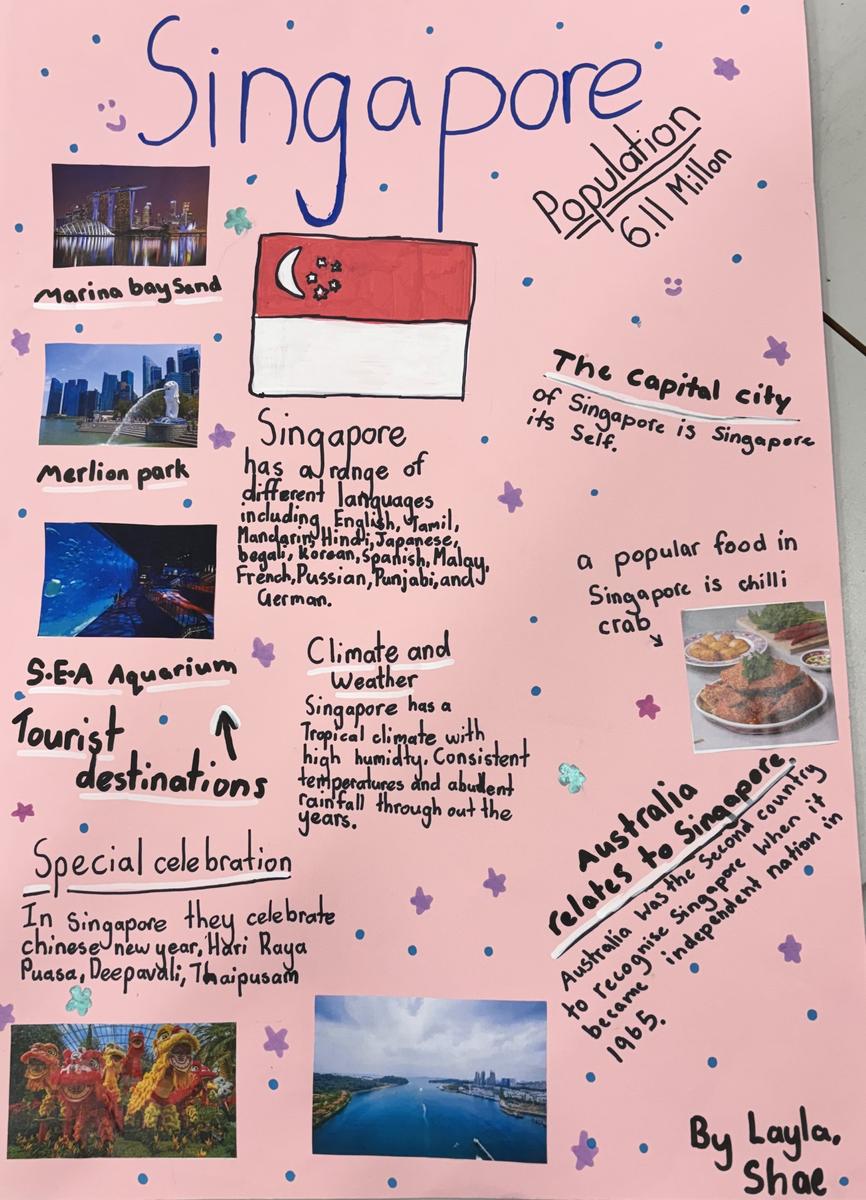 Singapore
Population
6.11 Millon
Marina bay Sand
Merlion park
S.E.A Aquarium
Tourist
destinations
Singapore
has a range of
different languages
including English, Tamil,
Mandarin, Hindi, Japanese,
begali, Korean, Spanish, Malay,
French, Russian, Punjabi, and
German.
The capital city
of Singapore is Singapore
its Self.
a popular food in
Singapore is chilli
crab
Climate and
Weather
Singapore has a
Tropical climate with
high humidty. Consistent
temperatures and abudent
rainfall through out the
years.
Australia
relates to Singapore.
Australia was the second country
to recognise Singapore when it
became independent nation in
1965.
Special celebration
In Singapore they celebrate
chinese new year, Hari Raya
Puasa, Deepavali, Thaipusam
By Layla,
Shae